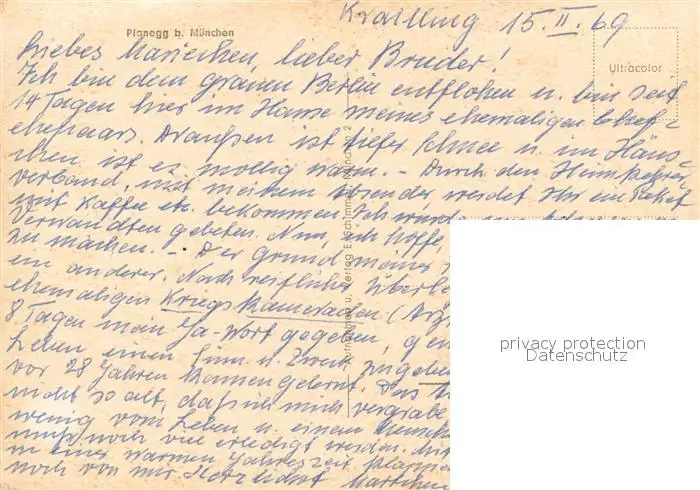 Planegg b. München
Krailling 15. II. 69
Ultracolor
Liebes Mariechen, lieber Bruder!
Ich bin dem grauen Berlin entflohen u. bin seit
14 Tagen hier im Hause meines ehemaligen
ehepaars. Draußen ist tiefer Schnee u. im Häus-
chen ist es mollig warm. - Durch den Heimkehrer
verband, mit meinem Absender, werdet Ihr ein Paket
mit Kaffee etc. bekommen. Ich wurde
Verwandten gebeten. Nun, ich hoffe,
zu machen. - Der Grund meiner
ein anderer. Nach reiflicher Überle
ehemaligen Kriegskameraden (Arzt
8 Tagen mein Ja-Wort gegeben, 
Leben einen Sinn u. Zweck zugeben
vor 28 Jahren kennengelernt. Das
nicht so alt, daß ich mich vergrabe
wenig vom Leben u. einem Mensch
muß noch viel erledigt werden. Mit
in einer warmen Jahreszeit
noch von mir. Herzlichst
Aufnahmen u. Verlag E. Schimmel, München 2
privacy protection
Datenschutz